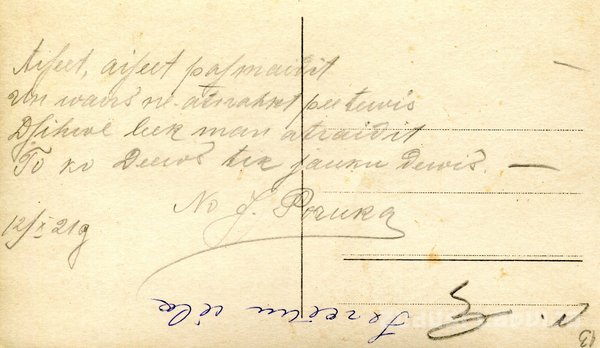 Aiseet, aiseet pasmaidit
un wairs ne-atnahkt pee tewis
Dsihwe leek man atraidit
To ko Deews tik jauku dewis. —
No J. Poruka
12/X 21g